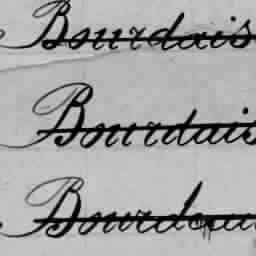 Bourdais
Bourdais
Bourdau